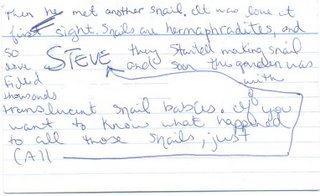 Then he met another snail. It was love at
first sight. Snails are hermaphradites, and
so STEVE they started making snail
and soon the garden was
filled with
thousands of
translucent snail babies. If you
want to know what happened
to all those snails, just
CALL